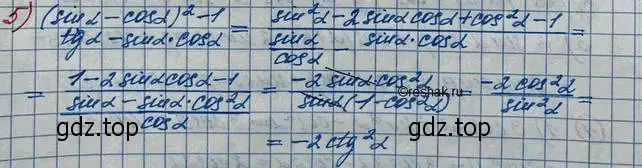 5) (sinα - cosα)² - 1 / tgα - sinα·cosα = sin²α - 2sinαcosα + cos²α - 1 / sinα/cosα - sinα·cosα =
= 1 - 2sinαcosα - 1 / (sinα - sinα·cos²α / cosα) = -2sinα·cos²α / sinα(1 - cos²α) = -2cos²α / sin²α =
= -2ctg²α
©reshak.ru
gdz.top gdz.top gdz.top